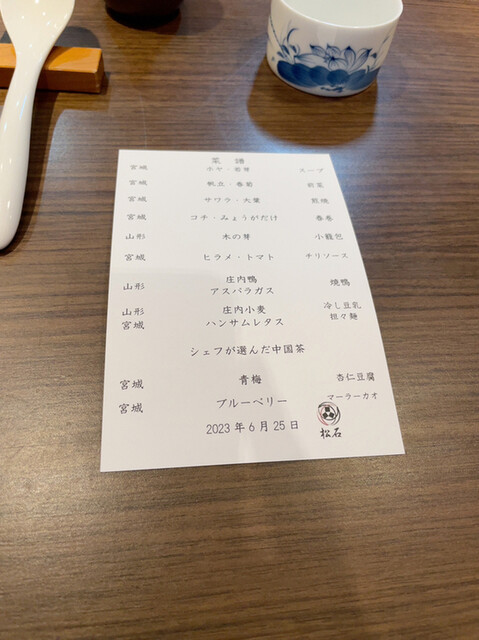 菜譜
宮城 ホヤ・若芽 スープ
宮城 帆立・春菊 前菜
宮城 サワラ・大葉 煎焼
宮城 コチ・みょうがだけ 春巻
山形 木の芽 小籠包
宮城 ヒラメ・トマト チリソース
山形 庄内鴨 焼鴨
アスパラガス
山形 庄内小麦 冷し豆乳
宮城 ハンサムレタス 担々麺
シェフが選んだ中国茶
宮城 青梅 杏仁豆腐
宮城 ブルーベリー マーラーカオ
2023年6月25日
松石